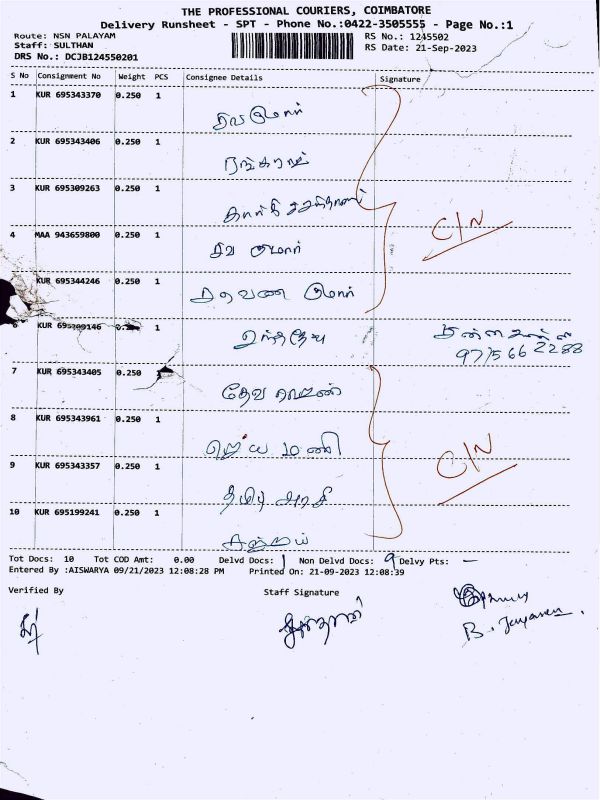 THE PROFESSIONAL COURIERS, COIMBATORE
Delivery Runsheet - SPT - Phone No.:0422-3505555 - Page No.:1
Route: NSN PALAYAM
Staff: SULTHAN
DRS No.: DCJB124550201
RS No.: 1245502
RS Date: 21-Sep-2023
S No Consignment No Weight PCS Consignee Details Signature
1 KUR 695343370 0.250 1
2 KUR 695343406 0.250 1
3 KUR 695309263 0.250 1
C/N
4 MAA 943659800 0.250 1 சிவ குமார்
5 KUR 695344246 0.250 1 சரவண குமார்
KUR 695309146 0.250 1
7 KUR 695343405 0.250
8 KUR 695343961 0.250 1 ஜெய மணி
C/N
9 KUR 695343357 0.250 1 தமிழ் அரசி
10 KUR 695199241 0.250 1
Tot Docs: 10 Tot COD Amt: 0.00 Delvd Docs: 1 Non Delvd Docs: 9 Delvy Pts: —
Entered By :AISWARYA 09/21/2023 12:08:28 PM Printed On: 21-09-2023 12:08:39
Verified By Staff Signature